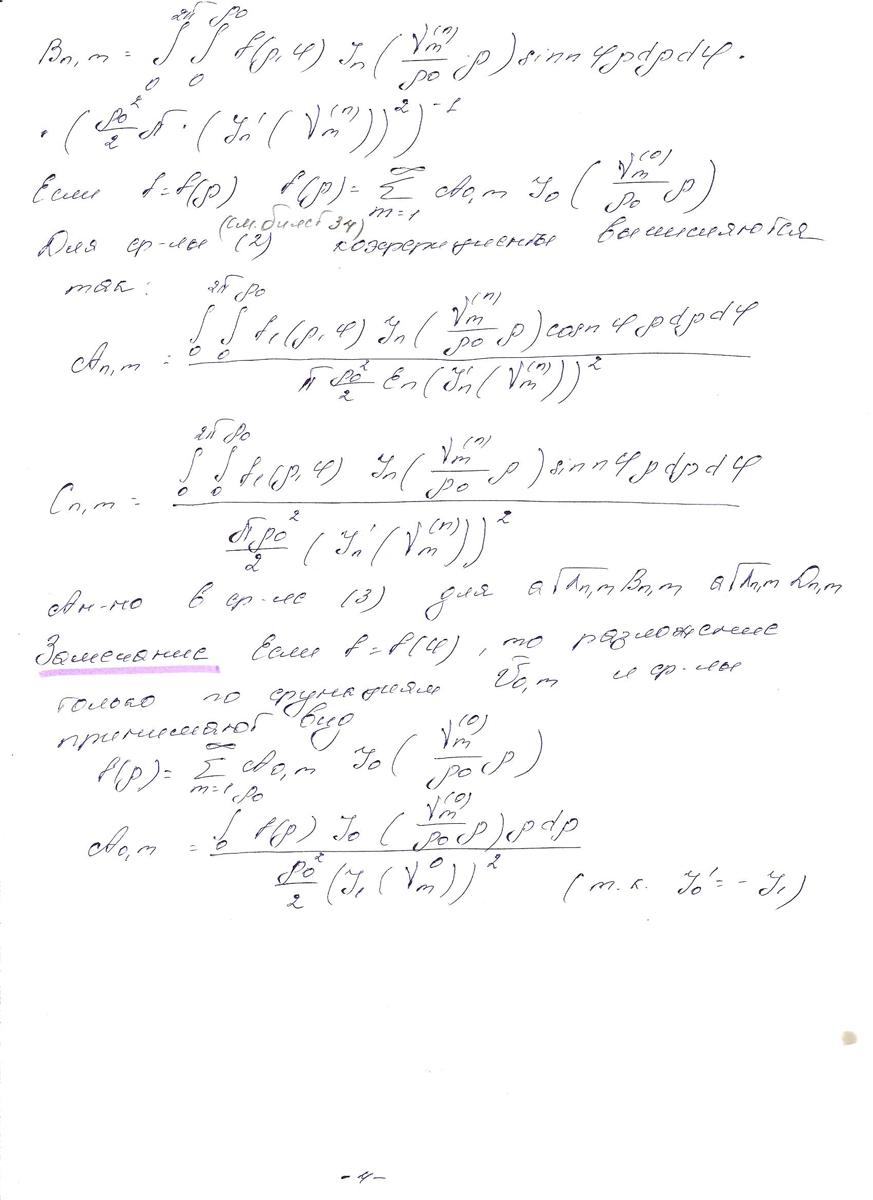 Bn,m = ∫₀^2π ∫₀^ρ₀ f(ρ,φ) Jn (νm⁽ⁿ⁾/ρ₀ · ρ) sin nφ ρdρdφ ·
· (ρ₀²/2 π · (Jn'(νm⁽ⁿ⁾))²)⁻¹
Если f=f(ρ) f(ρ)= ∑_{m=1}^∞ A₀,m J₀ (νm⁽⁰⁾/ρ₀ ρ)
(см. билет 34)
Для ф-лы (2) коэффициенты вычисляются
так:
An,m = ∫₀^2π ∫₀^ρ₀ f₁(ρ,φ) Jn (νm⁽ⁿ⁾/ρ₀ ρ) cos nφ ρdρdφ / π ρ₀²/2 εn (Jn'(νm⁽ⁿ⁾))²
Cn,m = ∫₀^2π ∫₀^ρ₀ f₁(ρ,φ) Jn (νm⁽ⁿ⁾/ρ₀ ρ) sin nφ ρdρdφ / πρ₀²/2 (Jn'(νm⁽ⁿ⁾))²
Ан-но в ф-ле (3) для a√λn,m Bn,m a√λn,m Dn,m
Замечание Если f=f(φ), то разложение
только по функциям v̄₀,m и ф-лы
принимают вид
f(ρ)= ∑_{m=1}^∞ A₀,m J₀ (νm⁽⁰⁾/ρ₀ ρ)
A₀,m = ∫₀^ρ₀ f(ρ) J₀ (νm⁽⁰⁾/ρ₀ ρ) ρdρ / ρ₀²/2 (J₁(νm⁰))² (т.к. J₀'=-J₁)
-4-